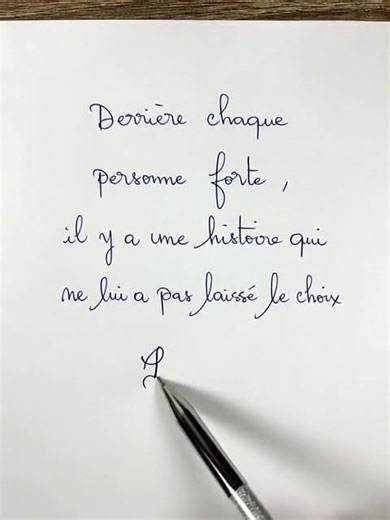 Derrière chaque
personne forte,
il y a une histoire qui
ne lui a pas laissé le choix